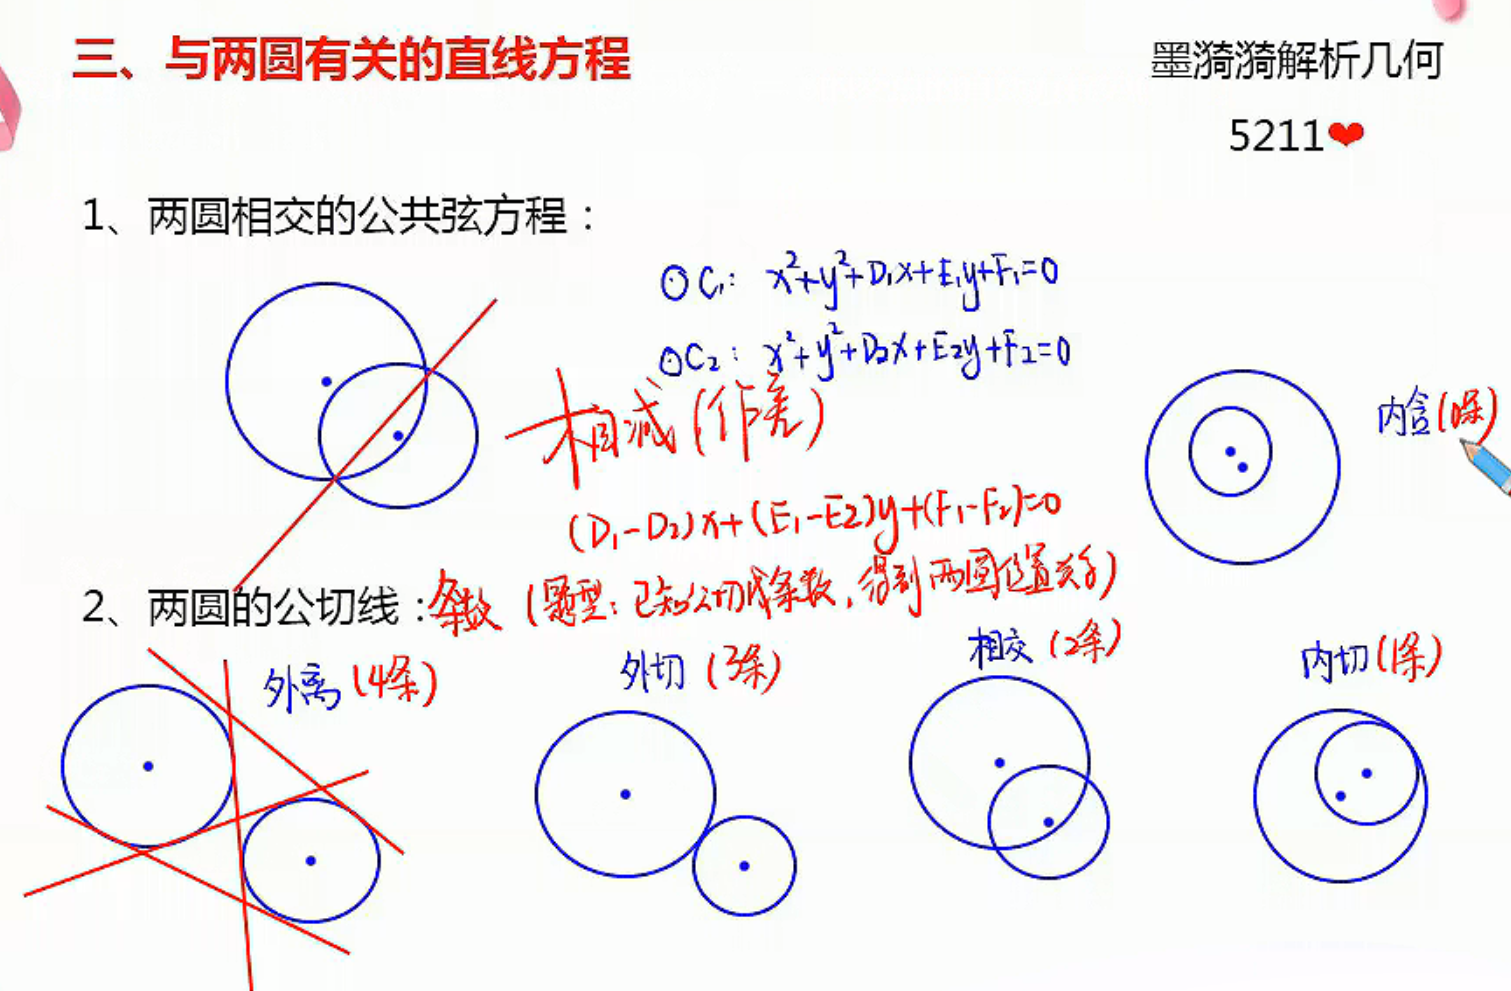 三、与两圆有关的直线方程
墨漪漪解析几何
5211❤
1、两圆相交的公共弦方程：
⊙C₁: x²+y²+D₁x+E₁y+F₁=0
⊙C₂: x²+y²+D₂x+E₂y+F₂=0
相减(作差)
(D₁-D₂)x+(E₁-E₂)y+(F₁-F₂)=0
内含(0条)
2、两圆的公切线：条数 (题型：已知公切线条数，得到两圆位置关系)
外离(4条)
外切(3条)
相交(2条)
内切(1条)